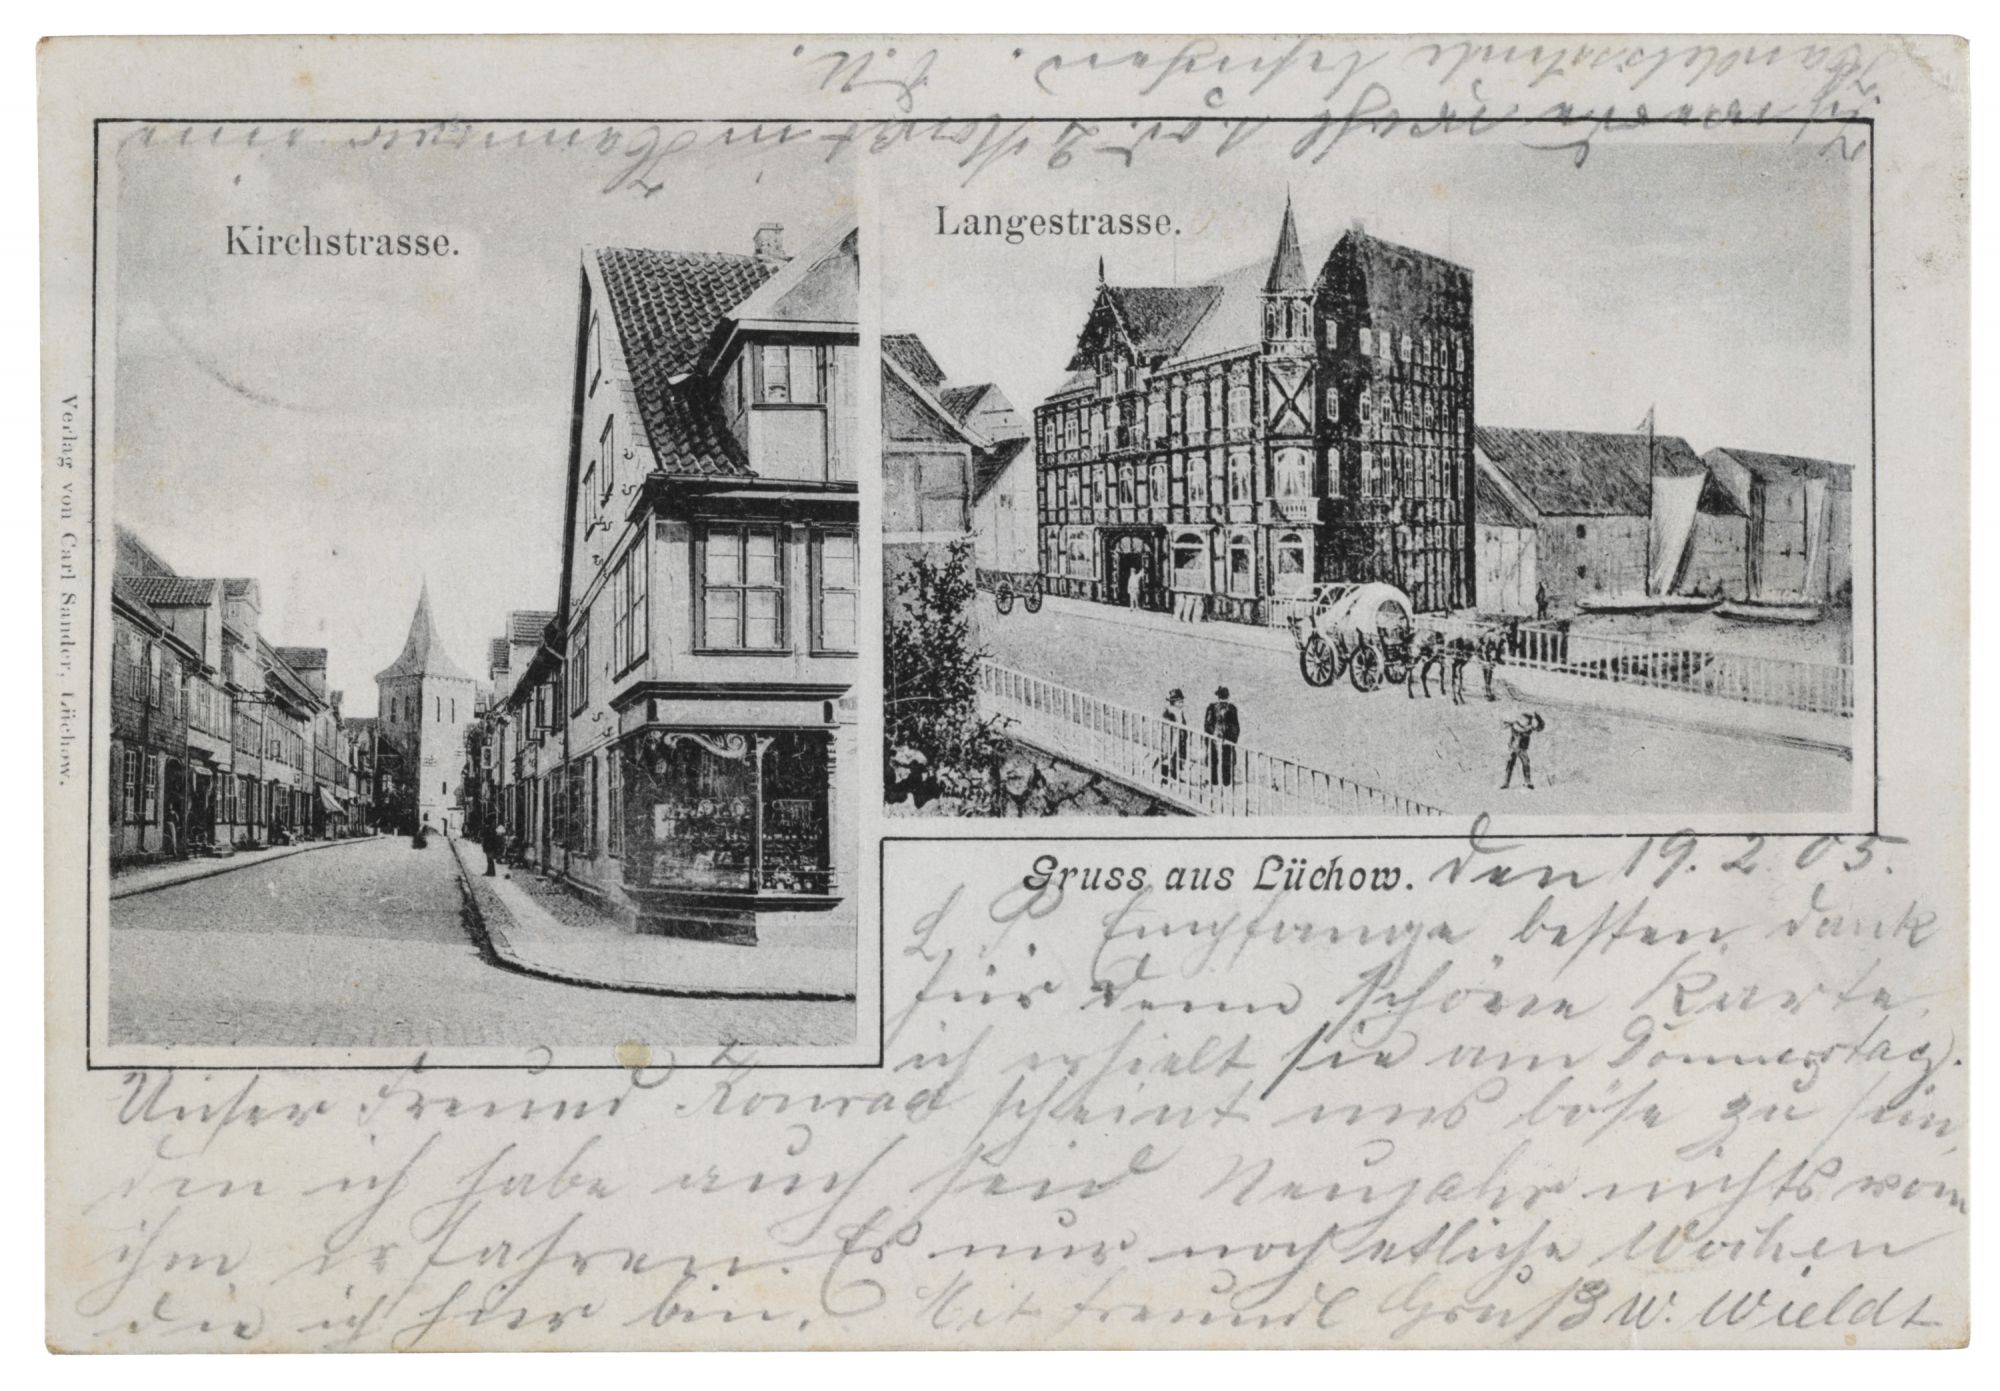 Kirchstrasse.
Langestrasse.
Verlag von Carl Sander, Lüchow.
Gruss aus Lüchow. den 19. 2. 05.
L. P. Empfange besten dank
für deine schöne Karte
ich erhielt sie am Donnerstag.
Unser Freund Konrad scheint uns böse zu sein,
den ich habe auch seid Neujahr nichts von
ihm erfahren. Es nur noch etliche Wochen
die ich hier bin. Mit freundl Gruß W. Wieldt
Ich werde in Hannover eine
Handelsschule besuchen.